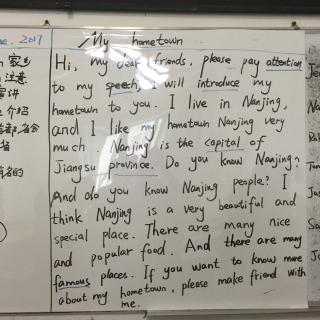 2017
家乡
注意
演讲
介绍
省会
省
名的
My hometown
Hi, my dear friends, please pay attention
to my speech, I will introduce my
hometown to you. I live in Nanjing,
and I like my hometown Nanjing very
much. Nanjing is the capital of
Jiangsu province. Do you know Nanjing?
And do you know Nanjing people? I
think Nanjing is a very beautiful and
special place. There are many nice
and popular food. And there are many
famous places. If you want to know more
about my hometown, please make friend with
me.